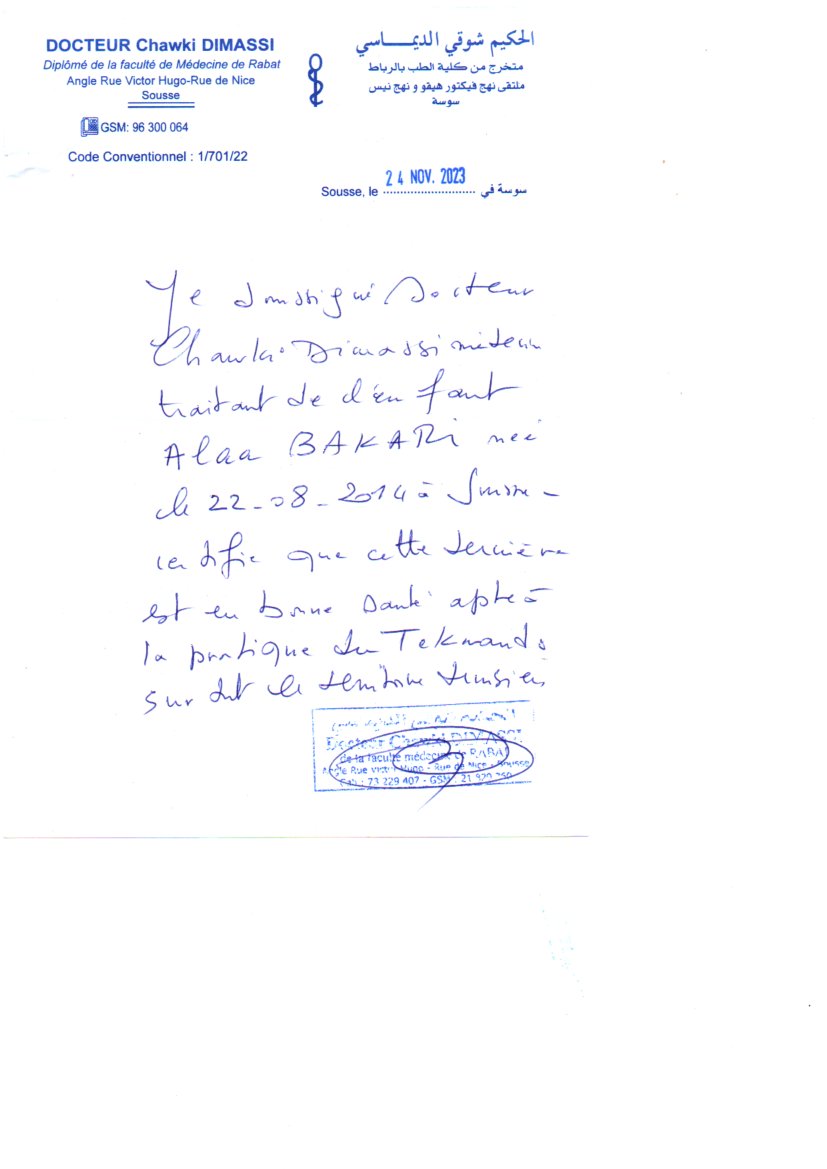 DOCTEUR Chawki DIMASSI
Diplômé de la faculté de Médecine de Rabat
Angle Rue Victor Hugo-Rue de Nice
Sousse
GSM: 96 300 064
Code Conventionnel : 1/701/22
الحكيم شوقي الديمـــاسي
متخرج من كلية الطب بالرباط
ملتقى نهج فيكتور هيقو و نهج نيس
سوسة
Sousse, le 24 NOV. 2023 سوسة في
Je soussigné Docteur
Chawki Dimassi médecin
traitant de l'enfant
Alaa BAKARI née
le 22-08-2014 à Sousse -
certifie que cette dernière
est en bonne santé apte à
la pratique du Tekwando
sur tout le territoire tunisien
Docteur Chawki DIMASSI
de la faculté médecine de RABAT
Angle Rue Victor Hugo - Rue de Nice - Sousse
73 229 407 - GSM : 21 920